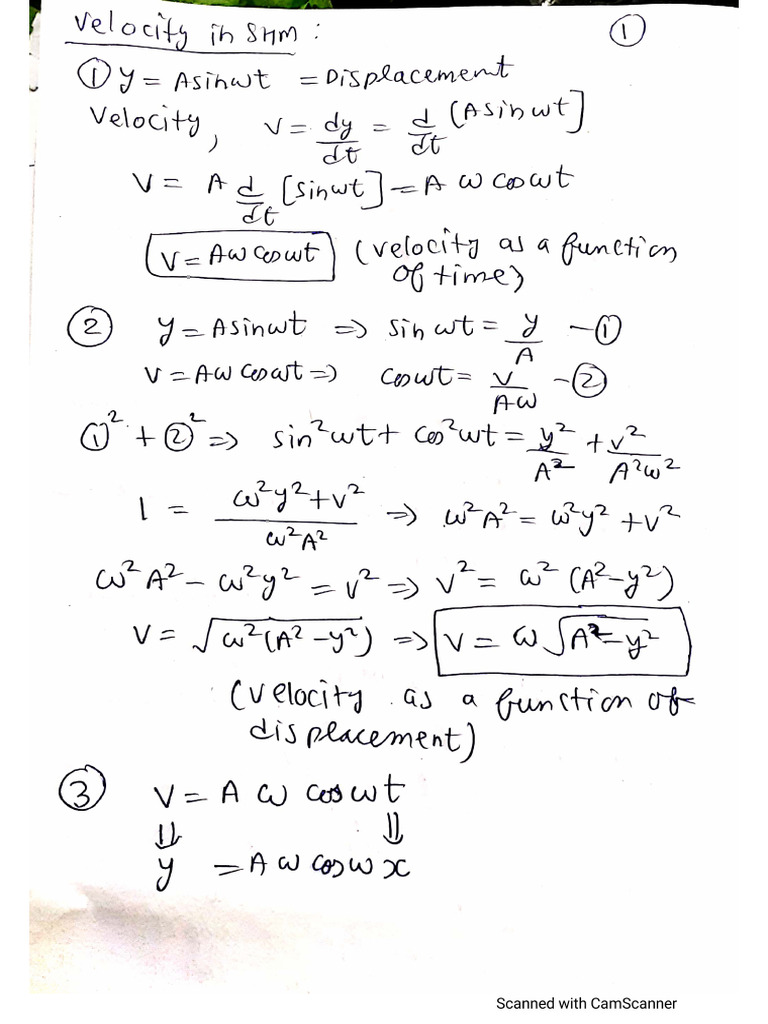 Velocity in SHM : ①
① y = Asinωt = Displacement
Velocity, v = dy/dt = d/dt (Asinωt]
v = A d/dt [sinωt] = A ω cosωt
v = Aω cosωt (velocity as a function
of time)
② y = Asinωt ⇒ sin ωt = y/A — ①
v = Aω cosωt ⇒ cosωt = v/Aω — ②
①² + ②² ⇒ sin²ωt + cos²ωt = y²/A² + v²/A²ω²
1 = ω²y² + v²/ω²A² ⇒ ω²A² = ω²y² + v²
ω²A² − ω²y² = v² ⇒ v² = ω² (A² − y²)
v = √ω²(A² − y²) ⇒ v = ω√A² − y²
(velocity as a function of
displacement)
③ v = A ω cosωt
⇓ ⇓
y = A ω cosω x
Scanned with CamScanner